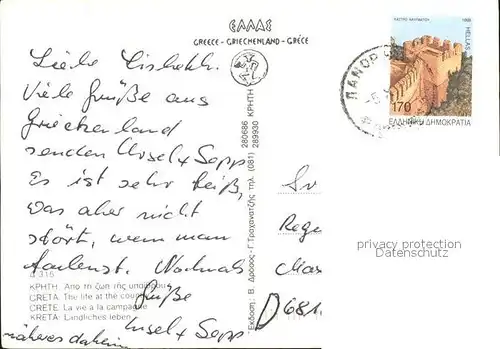 ΕΛΛΑΣ
GREECE - GRIECHENLAND - GRÈCE
Liebe Lisbeth.
Viele Grüße aus
Griechenland
senden Ursel + Sepp
Es ist sehr heiß,
was aber nicht
stört, wenn man
faulenzt. Nochmals
Grüße
Ursel + Sepp
näheres daheim
Δ 315
ΚΡΗΤΗ: Απο τη ζωή της υπαίθρου
CRETA: The life at the
CRETE: La vie a la campagne
KRETA: Ländliches leben
Εκδοση: Β. Δρόσος - Γ. Τραχανατζής τηλ. (081) 280686 289930 ΚΡΗΤΗ
1998
HELLAS
170
ΕΛΛΗΝΙΚΗ ΔΗΜΟΚΡΑΤΙΑ
ΠΑΝΟΡ
Rege
D 681
privacy protection
Datenschutz